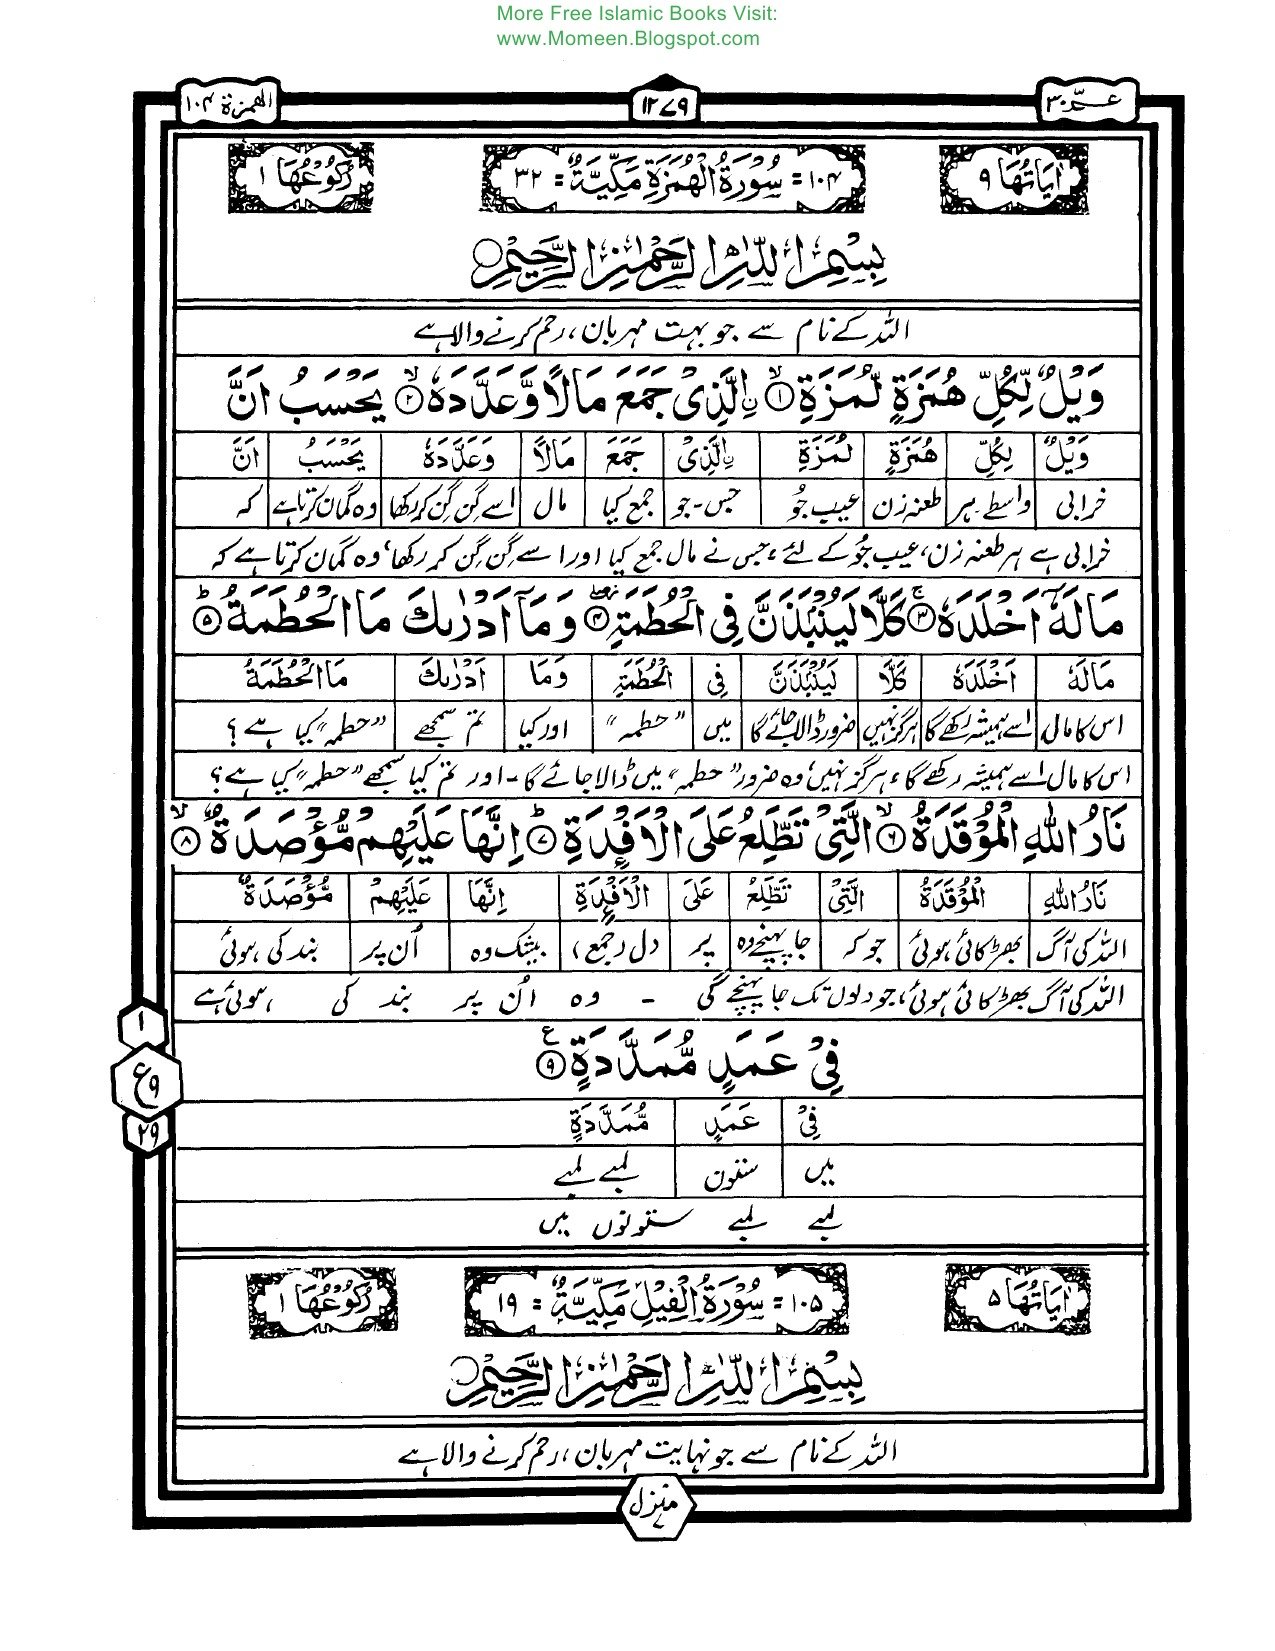 More Free Islamic Books Visit:
www.Momeen.Blogspot.com
عـــمّ ۳۰ ۱۲۷۹ الھمزۃ ۱۰۴
اٰیَاتُهَا ۹ ۱۰۴ = سُوْرَةُ الْهُمَزَةِ مَكِّيَّةٌ = ۳۲ رُكُوْعُهَا ۱
بِسْمِ اللّٰهِ الرَّحْمٰنِ الرَّحِيْمِ
اللہ کے نام سے جو بہت مہربان، رحم کرنے والا ہے
وَيْلٌ لِّكُلِّ هُمَزَةٍ لُّمَزَةِ ۙ﴿۱﴾ ۣالَّذِىْ جَمَعَ مَالًا وَّعَدَّدَهٗ ۙ﴿۲﴾ يَحْسَبُ اَنَّ
وَيْلٌ لِكُلِّ هُمَزَةٍ لُمَزَةِ ۣالَّذِىْ جَمَعَ مَالًا وَعَدَّدَهٗ يَحْسَبُ اَنَّ
خرابی واسطے ہر طعنہ زن عیب جُو جس۔جو جمع کیا مال اسے گِن گِن کر رکھا وہ گمان کرتا ہے کہ
خرابی ہے ہر طعنہ زن، عیب جُو کے لئے، جس نے مال جمع کیا اور اسے گِن گِن کر رکھا، وہ گمان کرتا ہے کہ
مَالَهٗۤ اَخْلَدَهٗ ۚ﴿۳﴾ كَلَّا لَيُنْۢبَذَنَّ فِى الْحُطَمَةِ ۖ﴿۴﴾ وَمَاۤ اَدْرٰىكَ مَا الْحُطَمَةُ ؕ﴿۵﴾
مَالَهٗ اَخْلَدَهٗ كَلَّا لَيُنْۢبَذَنَّ فِى الْحُطَمَةِ وَمَا اَدْرٰىكَ مَا الْحُطَمَةُ
اس کا مال اسے ہمیشہ رکھے گا ہرگز نہیں ضرور ڈالا جائے گا میں ”حطمہ“ اور کیا تم سمجھے ”حطمہ“ کیا ہے؟
اس کا مال اسے ہمیشہ رکھے گا، ہرگز نہیں، وہ ضرور ”حطمہ“ میں ڈالا جائے گا۔ اور تم کیا سمجھے ”حطمہ“ کیا ہے؟
نَارُ اللّٰهِ الْمُوْقَدَةُ ۙ﴿۶﴾ الَّتِىْ تَطَّلِعُ عَلَى الْاَفْـِٕدَةِ ؕ﴿۷﴾ اِنَّهَا عَلَيْهِمْ مُّؤْصَدَةٌ ۙ﴿۸﴾
نَارُ اللّٰهِ الْمُوْقَدَةُ الَّتِىْ تَطَّلِعُ عَلَى الْاَفْـِٕدَةِ اِنَّهَا عَلَيْهِمْ مُّؤْصَدَةٌ
اللہ کی آگ بھڑکائی ہوئی جو کہ جا پہنچے وہ پر دل (جمع) بیشک وہ اُن پر بند کی ہوئی
اللہ کی آگ بھڑکائی ہوئی، جو دلوں تک جا پہنچے گی ۔ وہ اُن پر بند کی ہوئی ہے
فِىْ عَمَدٍ مُّمَدَّدَةٍ ﴿۹﴾ ع
۱
ع ۹
۲۹
فِىْ عَمَدٍ مُّمَدَّدَةٍ
میں ستون لمبے لمبے
لمبے لمبے ستونوں میں
اٰیَاتُهَا ۵ ۱۰۵ = سُوْرَةُ الْفِيْلِ مَكِّيَّةٌ = ۱۹ رُكُوْعُهَا ۱
بِسْمِ اللّٰهِ الرَّحْمٰنِ الرَّحِيْمِ
اللہ کے نام سے جو نہایت مہربان، رحم کرنے والا ہے
منزل ۷